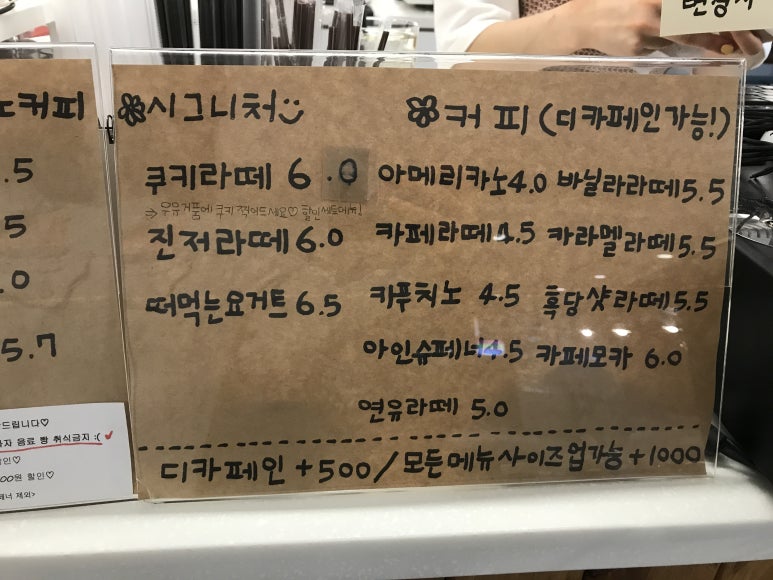 커피
.5
5
.0
5.7
드립니다♡
음료 빵 취식금지 :(
할인♡
00원 할인♡
제외>
시그니처
쿠키라떼 6.0
⇒ 우유거품에 쿠키 찍어드세요♡ 할인
진저라떼 6.0
떠먹는요거트 6.5
커피 (디카페인가능!)
아메리카노 4.0 바닐라라떼 5.5
카페라떼 4.5 카라멜라떼 5.5
카푸치노 4.5 흑당샷라떼 5.5
아인슈페너 4.5 카페모카 6.0
연유라떼 5.0
디카페인 +500 / 모든메뉴사이즈업가능 +1000